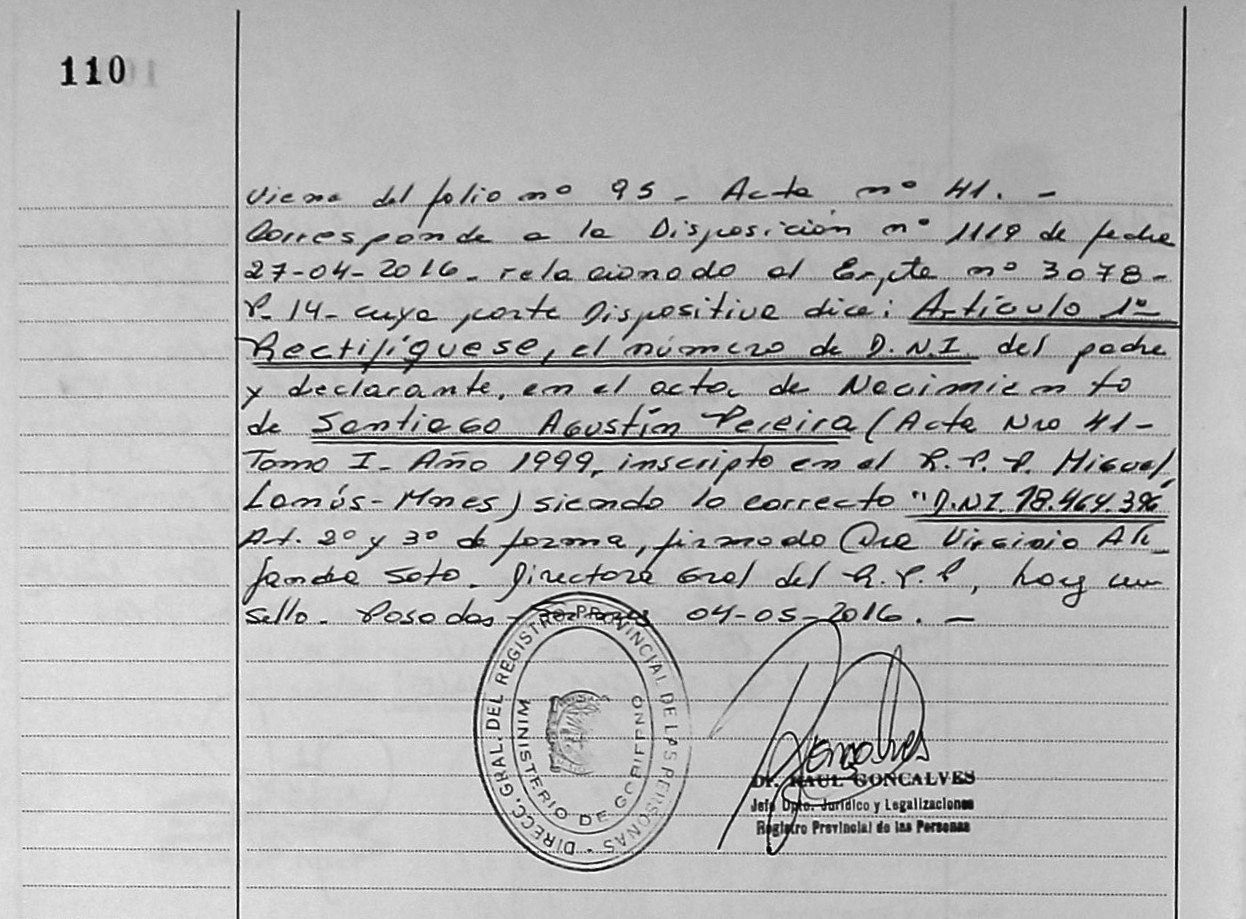 110
Viene del folio nº 95 - Acta nº 41. -
Corresponde a la Disposición nº 1119 de fecha
27-04-2016- relacionado al Expte nº 3078-
P- 14- cuya parte Dispositiva dice: Artículo 1º
Rectifíquese, el número de D.N.I. del padre
y declarante, en el acta de Nacimiento
de Santiago Agustín Pereira (Acta Nro 41-
Tomo I- Año 1999, inscripto en el R.P.P. Miguel
Lanús-Mnes) siendo lo correcto "D.N.I. 18.464.396
Art. 2º y 3º de forma, firmado Dra Virginia
Soto. Directora Gral del R.P.P, hay un
sello. Posadas 04-05-2016. -
DIRECC. GRAL. DEL REGISTRO PROVINCIAL DE LAS PERSONAS
MINISTERIO DE GOBIERNO
Goncalves
Dr. RAUL GONCALVES
Jefe Dpto. Jurídico y Legalizaciones
Registro Provincial de las Personas